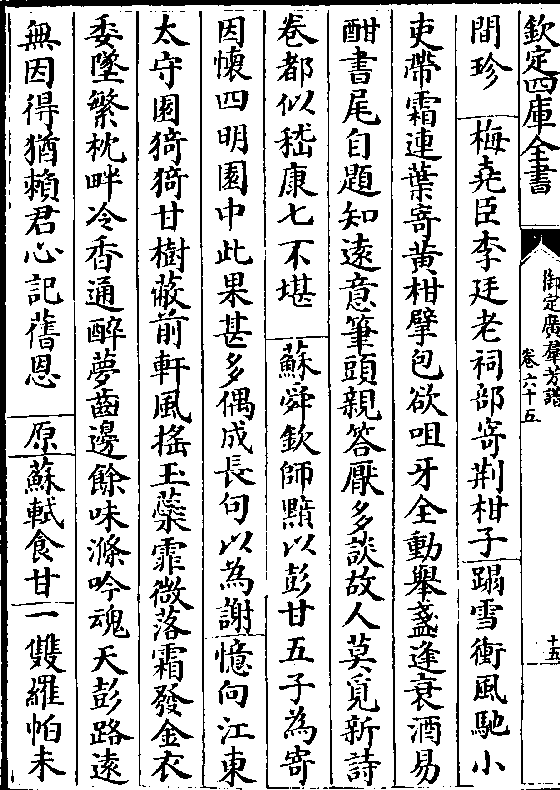 欽定四庫全書
御定廣羣芳譜
卷六十五
十五
間珍 梅堯臣李廷老祠部寄荆柑子蹋雪衝風馳小
吏帶霜連葉寄黄柑擘包欲咀牙全動舉盞逢衰酒易
酣書尾自題知遠意筆頭親答厭多談故人莫覓新詩
卷都似嵇康七不堪 蘇舜欽師黯以彭甘五子為寄
因懷四明園中此果甚多偶成長句以為謝憶向江東
太守園猗猗甘樹蔽前軒風揺玉蘂霏微落霜發金衣
委墜繁枕畔冷香通醉夢齒邊餘味滌吟魂天彭路遠
無因得猶賴君心記舊恩 原蘇軾食甘一雙羅帕未